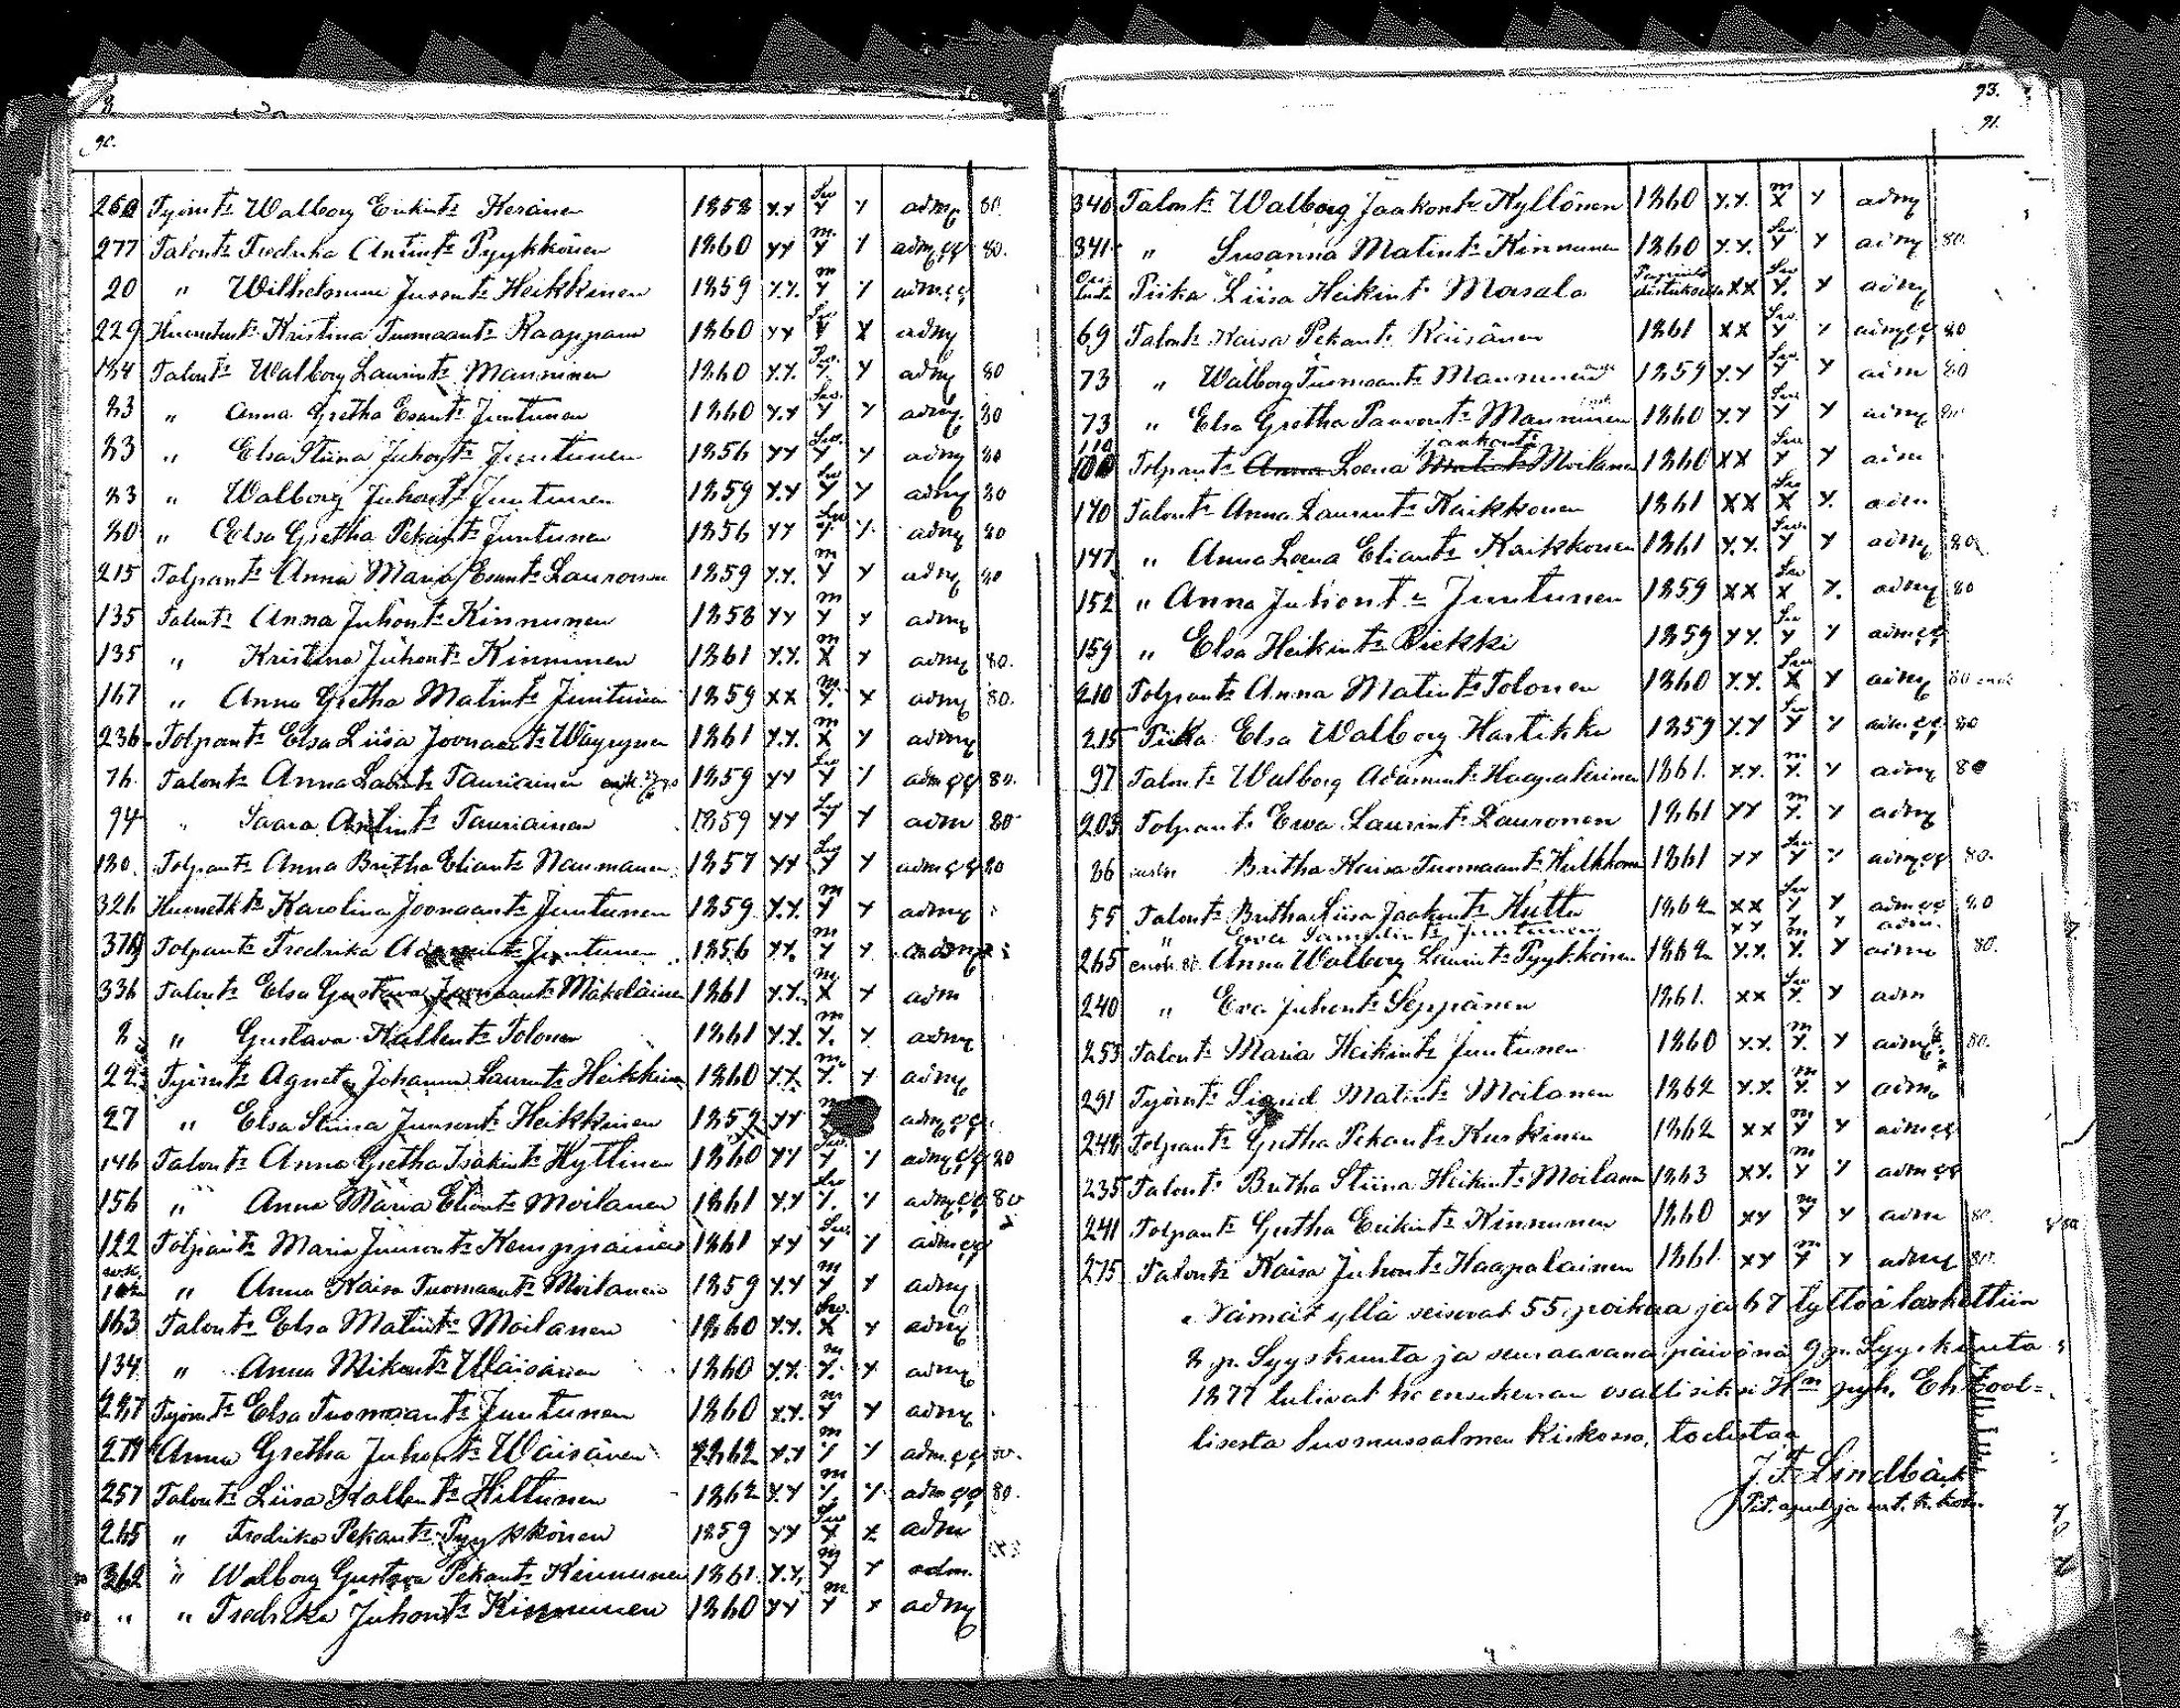 90.
260 Työmt: Walborg Erikint: Keränen 1858 y.y Lu y y admq 80.
277 Talont: Fredrika Antint: Pyykkönen 1860 yy m. y y admqq 80.
20 " Wilhelmina Jusont: Heikkinen 1859 y.y. m y y admqq
229 Kristina Tuomaant: Kaappana 1860 yy y x admq
134 Talont: Walborg Laurint: Manninen 1860 y.y. y y admq 80
83 " Anna Gretha Esant: Juntunen 1860 y.y y y admq 80
83 " Elsa Stiina Juhont: Juntunen 1856 yy y y admq 80
83 " Walborg Juhont: Juntunen 1859 y.y y y admq 80
80 " Elsa Gretha Pekant: Juntunen 1856 yy y y admq 80
215 Tolpant: Anna Maria Esant: Lauronen 1859 y.y. m y y admq 80
135 Talont: Anna Juhont: Kinnunen 1858 yy m y y admq
135 " Kristina Juhont: Kinnunen 1861 y.y. m x y admq 80.
167 " Anna Gretha Matint: Juntunen 1859 xx m y. x admq 80.
236 Tolpant: Elsa Liisa Joonaant: Wäyrynen 1861 y.y. m x y admq
76. Talont: Anna Laurint: Tauriainen 1859 yy y y admqq 80.
94 " Saara Antint: Tauriainen 1859 yy y y adm 80
180. Tolpant: Anna Britha Eliant: Naumanen 1857 yy y y admqq 80
326 Karolina Joonaant: Juntunen 1859 y.y. m y y admq
Tolpant: Fredrika Juntunen 1856 yy. m y y
336 Talont: Elsa Gustava Joonaant: Mäkeläinen 1861 y.y. m x y adm
8 " Gustava Kallent: Tolonen 1861 y.y. m y. y admq
22 Työmt: Agneta Johanna Laurint: Heikkinen 1860 y.y. m y. y admq
27 " Elsa Stiina Junsont: Heikkinen 1859 yy admqq.
146 Talont: Anna Gretha Isakint: Hyttinen 1860 yy y y admqq 80
156 " Anna Maria Eliant: Moilanen 1861 y.y y. y admqq 80
122 Tolpant: Maria Junsont: Kemppainen 1861 yy y y admqq
" Anna Kaisa Tuomaant: Moilanen 1859 y.y m y y admq
163 Talont: Elsa Matint: Moilanen 1860 y.y. x y admq
134 " Anna Mikont: Wäisänen 1860 y.y. m y. y admq
287 Työmt: Elsa Tuomaant: Juntunen 1860 y.y. m y y admq
279 Anna Gretha Juhont: Wäisänen 1862 y.y m y y admqq 80.
257 Talont: Liisa Kallent: Hiltunen 1862 y.y m y. y admqq 80.
265 " Fredrika Pekant: Pyykkönen 1859 yy y x adm
362 " Walborg Gustava Pekant: Kinnunen 1861 y.y. m y y adm.
" " Fredrika Juhont: Kinnunen 1860 yy m y x admq
93.
91.
340 Talont: Walborg Jaakont: Kyllönen 1860 y.y. m x y admq
341 " Susanna Matint: Kinnunen 1860 y.y. y y admq 80.
Piika Liisa Heikint: Moisala xx y. y admq
69 Talont: Kaisa Pekant: Räisänen 1861 xx y y admqq 80
73 " Walborg Tuomaant: Manninen 1859 y.y y y adm 80
73 " Elsa Gretha Paavont: Manninen 1860 y.y y y admq 80
110 Jaakont:
Tolpant: Anna Leena Matint: Moilanen 1860 xx y y adm
140 Talont: Anna Laurint: Kaikkonen 1861 xx x y. adm
147 " Anna Leena Eliant: Kaikkonen 1861 y.y. y y admq 80
152 " Anna Juhont: Juntunen 1859 xx x y. admq 80
159 " Elsa Heikint: Riekki 1859 yy. y y admqq
210 Tolpant: Anna Matint: Tolonen 1860 y.y. x y admq 80
215 Piika Elsa Walborg Hartikka 1859 y.y y y admqq 80
97 Talont: Walborg Adamint: Haapalainen 1861. y.y. m y. y admq 80
203 Tolpant: Ewa Laurint: Lauronen 1861 yy m y. y admq
86 Britha Kaisa Tuomaant: Hulkkonen 1861 yy y y admqq 80.
55 Talont: Britha Liisa Jaakont: Huttu 1862 xx y y admqq 80
" Eeva Juntunen yy y y adm.
265 Anna Walborg Laurint: Pyykkönen 1862 y.y. m y. y adm 80.
240 " Eva Juhont: Seppänen 1861. xx y. y adm
253 Talont: Maria Heikint: Juntunen 1860 y.y. m y. y 80.
291 Työmt: Sigrid Matint: Moilanen 1862 y.y. m y. y admq
248 Tolpant: Gretha Pekant: Kurkinen 1862 xx m y y admqq
235 Talont: Britha Stiina Heikint: Moilanen 1863 xy. m y y admqq
241 Tolpant: Gretha Erikint: Kinnunen 1860 xy m y y adm 80.
275 Talont: Kaisa Juhont: Haapalainen 1861. xy m y y admq 80.
Nämät yllä seisovat 55 poikaa ja 67 tyttöä laskettiin
8 p. Syyskuuta ja seuraavana päivänä 9 p. Syyskuuta
1877 tulivat he ensikerran osallisiksi H:n pyh. Ehtool=
lisesta Suomussalmen kirkossa, todistaa
J. F. Lindbäck